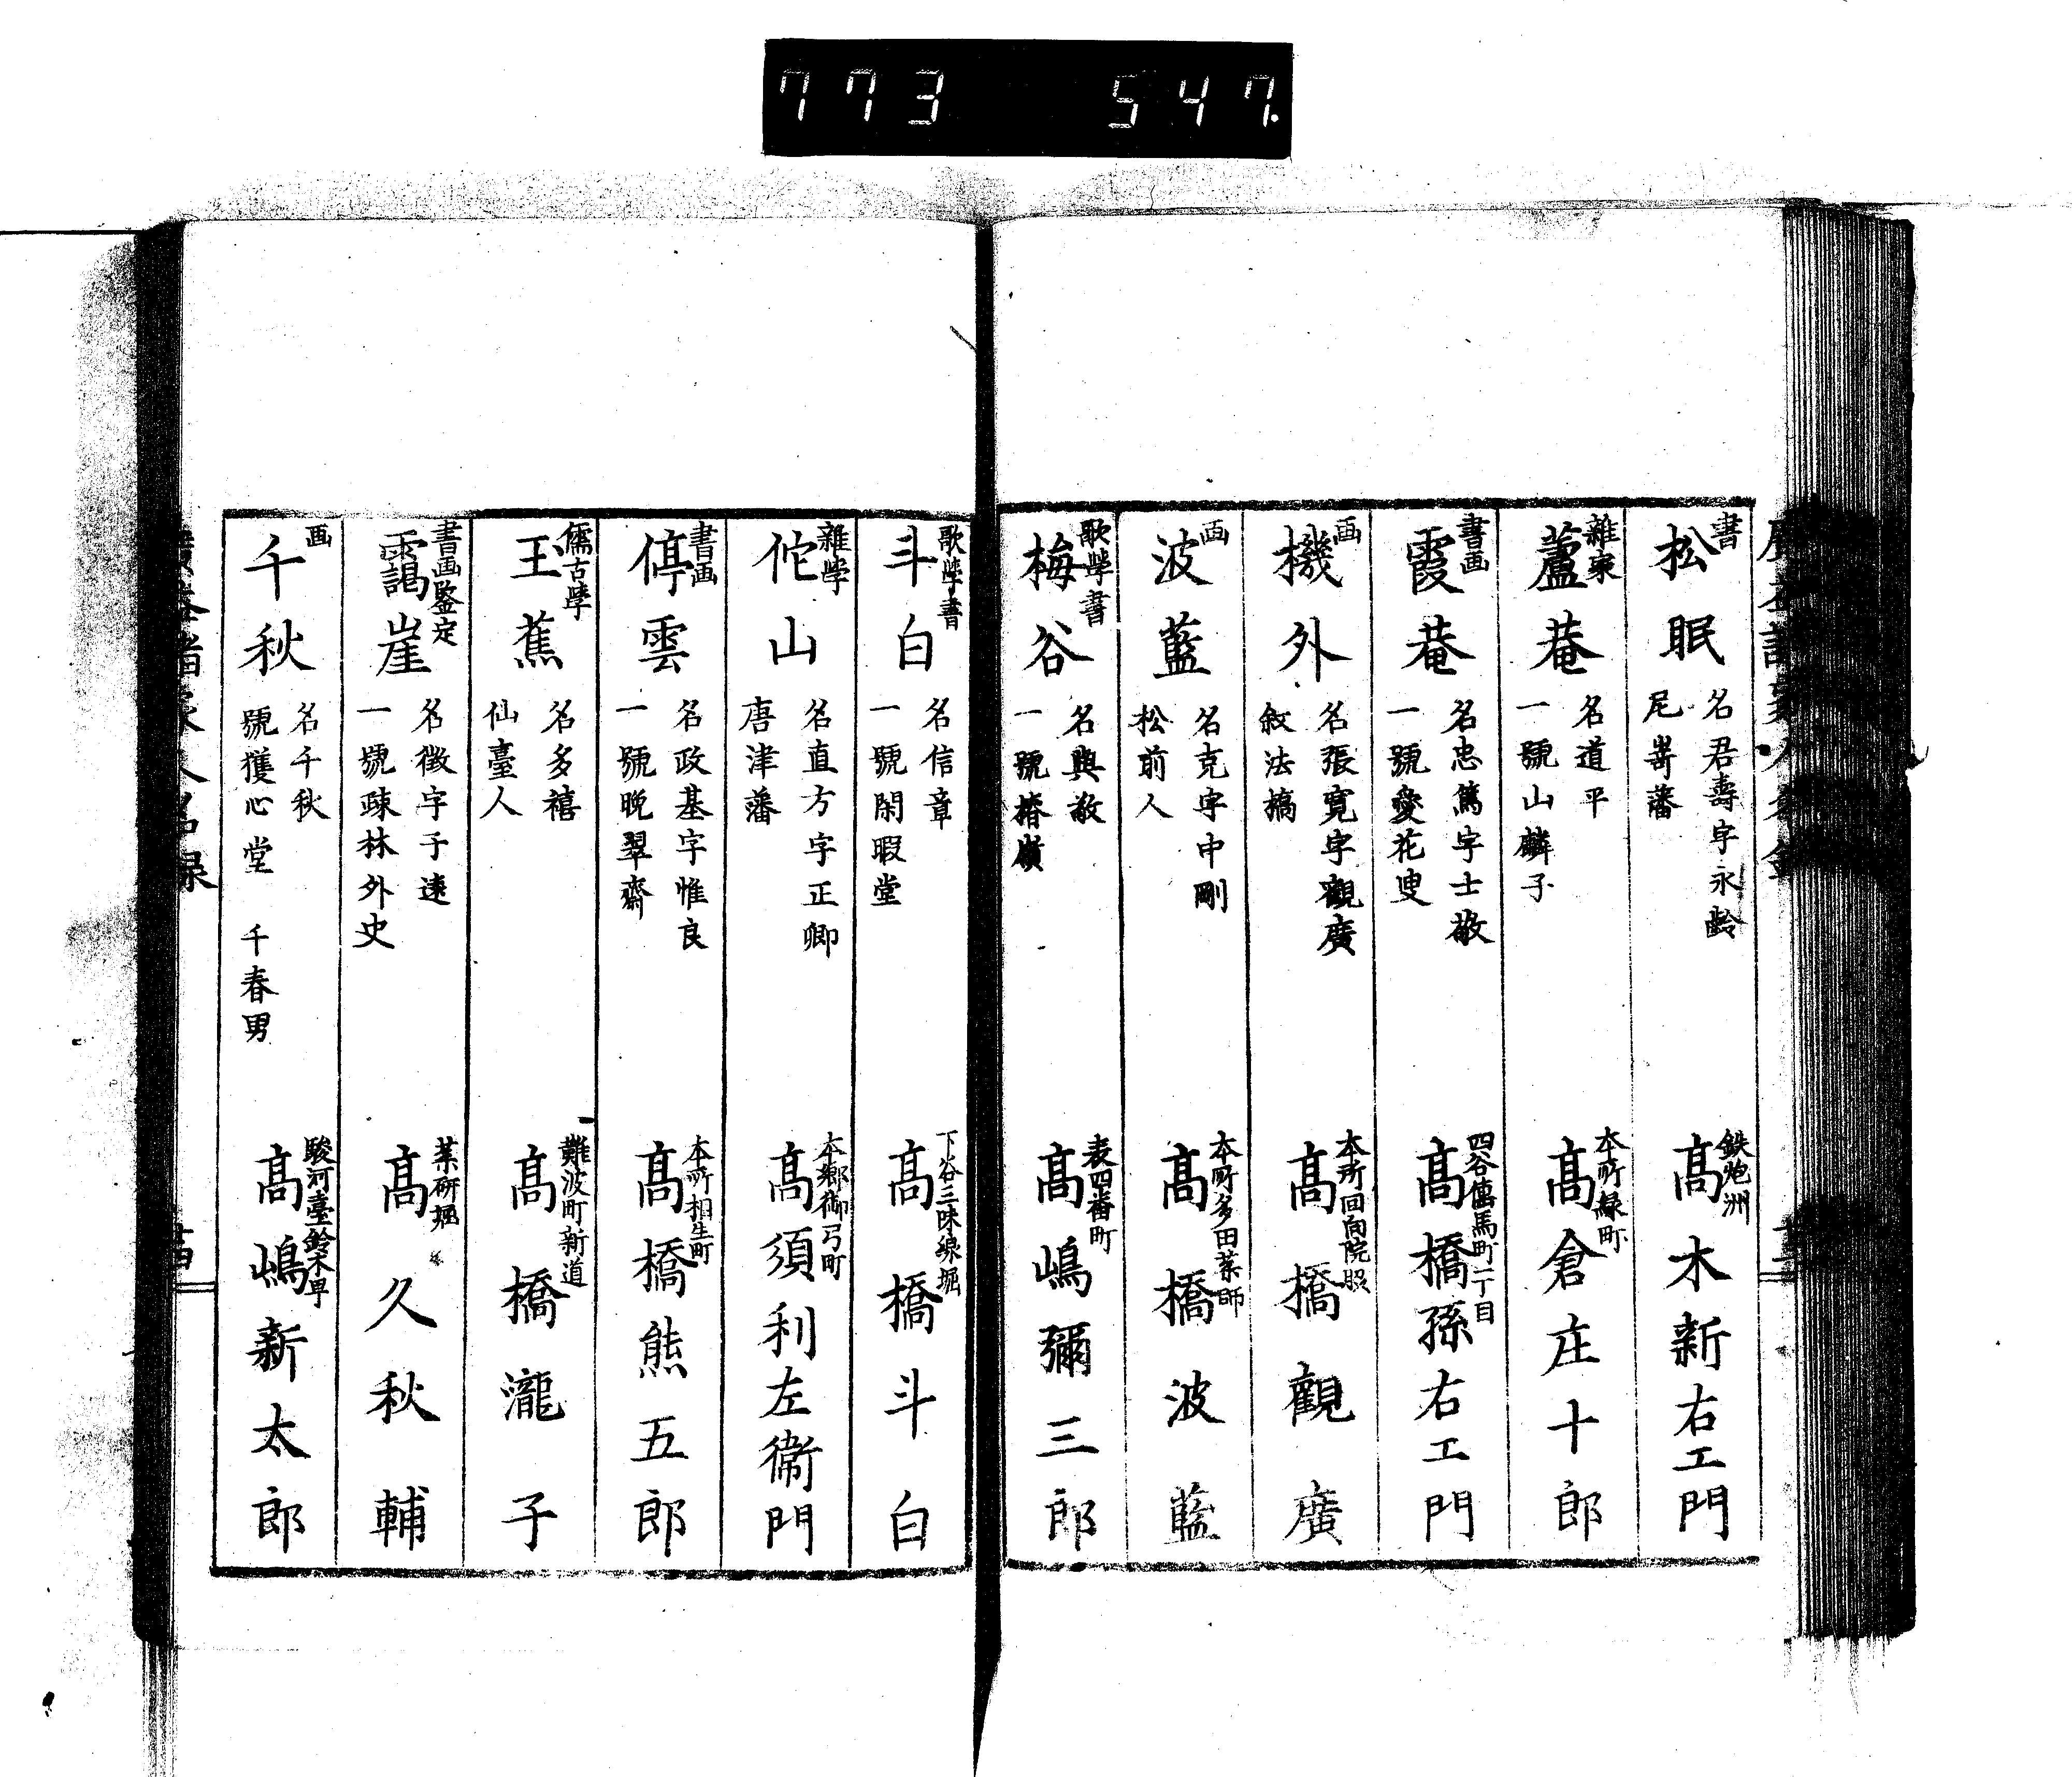 773 547.
書
松眠
名君壽字永齡
尼嵜藩
鉄炮洲
髙木新右エ門
雜家
蘆菴
名道平
一號山麟子
本所緑町
髙倉庄十郎
書画
霞菴
名忠篤字士敬
一號愛花叟
四谷傳馬町一丁目
髙橋孫右エ門
画
機外
名張寛字觀廣
叙法橋
本所回向院
髙橋觀廣
画
波藍
名克字中剛
松前人
本所多田薬師
髙橋波藍
歌學書
梅谷
名興敬
一號椿嶺
表四番町
髙嶋彌三郎
歌學書
斗白
名信章
一號閑暇堂
下谷三味線堀
髙橋斗白
雜學
佗山
名直方字正卿
唐津藩
本郷御弓町
髙須利左衞門
書画
停雲
名政基字惟良
一號晚翠齋
本所相生町
髙橋熊五郎
儒古學
玉蕉
名多禧
仙臺人
難波町新道
髙橋瀧子
書画鑒定
靄崖
名徴字子遠
一號疎林外史
薬研堀
髙久秋輔
画
千秋
名千秋
號獲心堂 千春男
駿河臺鈴木町
髙嶋新太郎